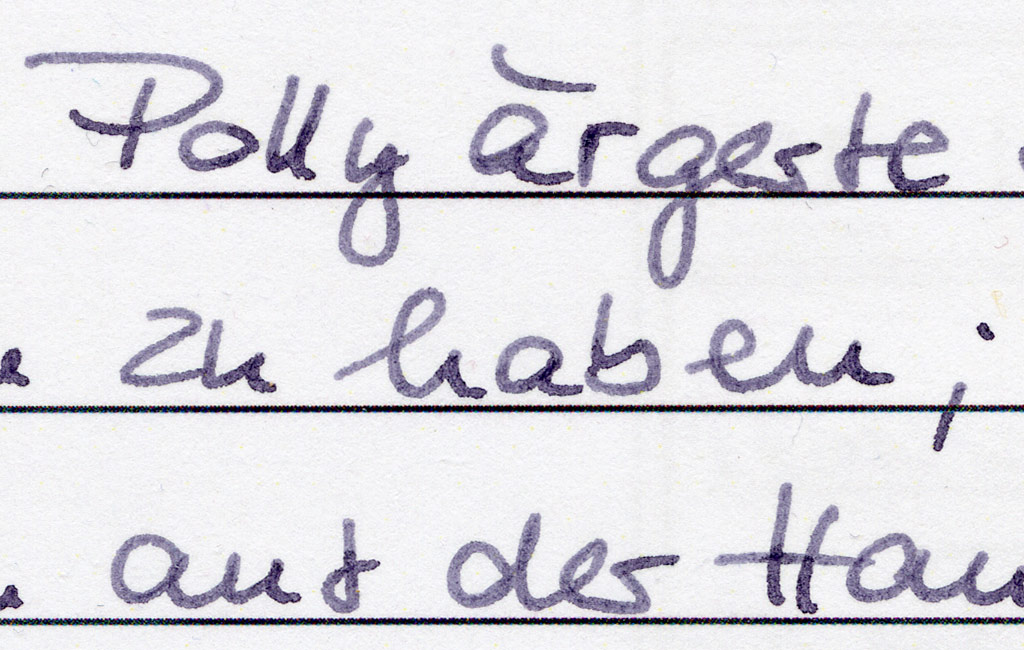 Polly ärgerte
zu haben;
auf der